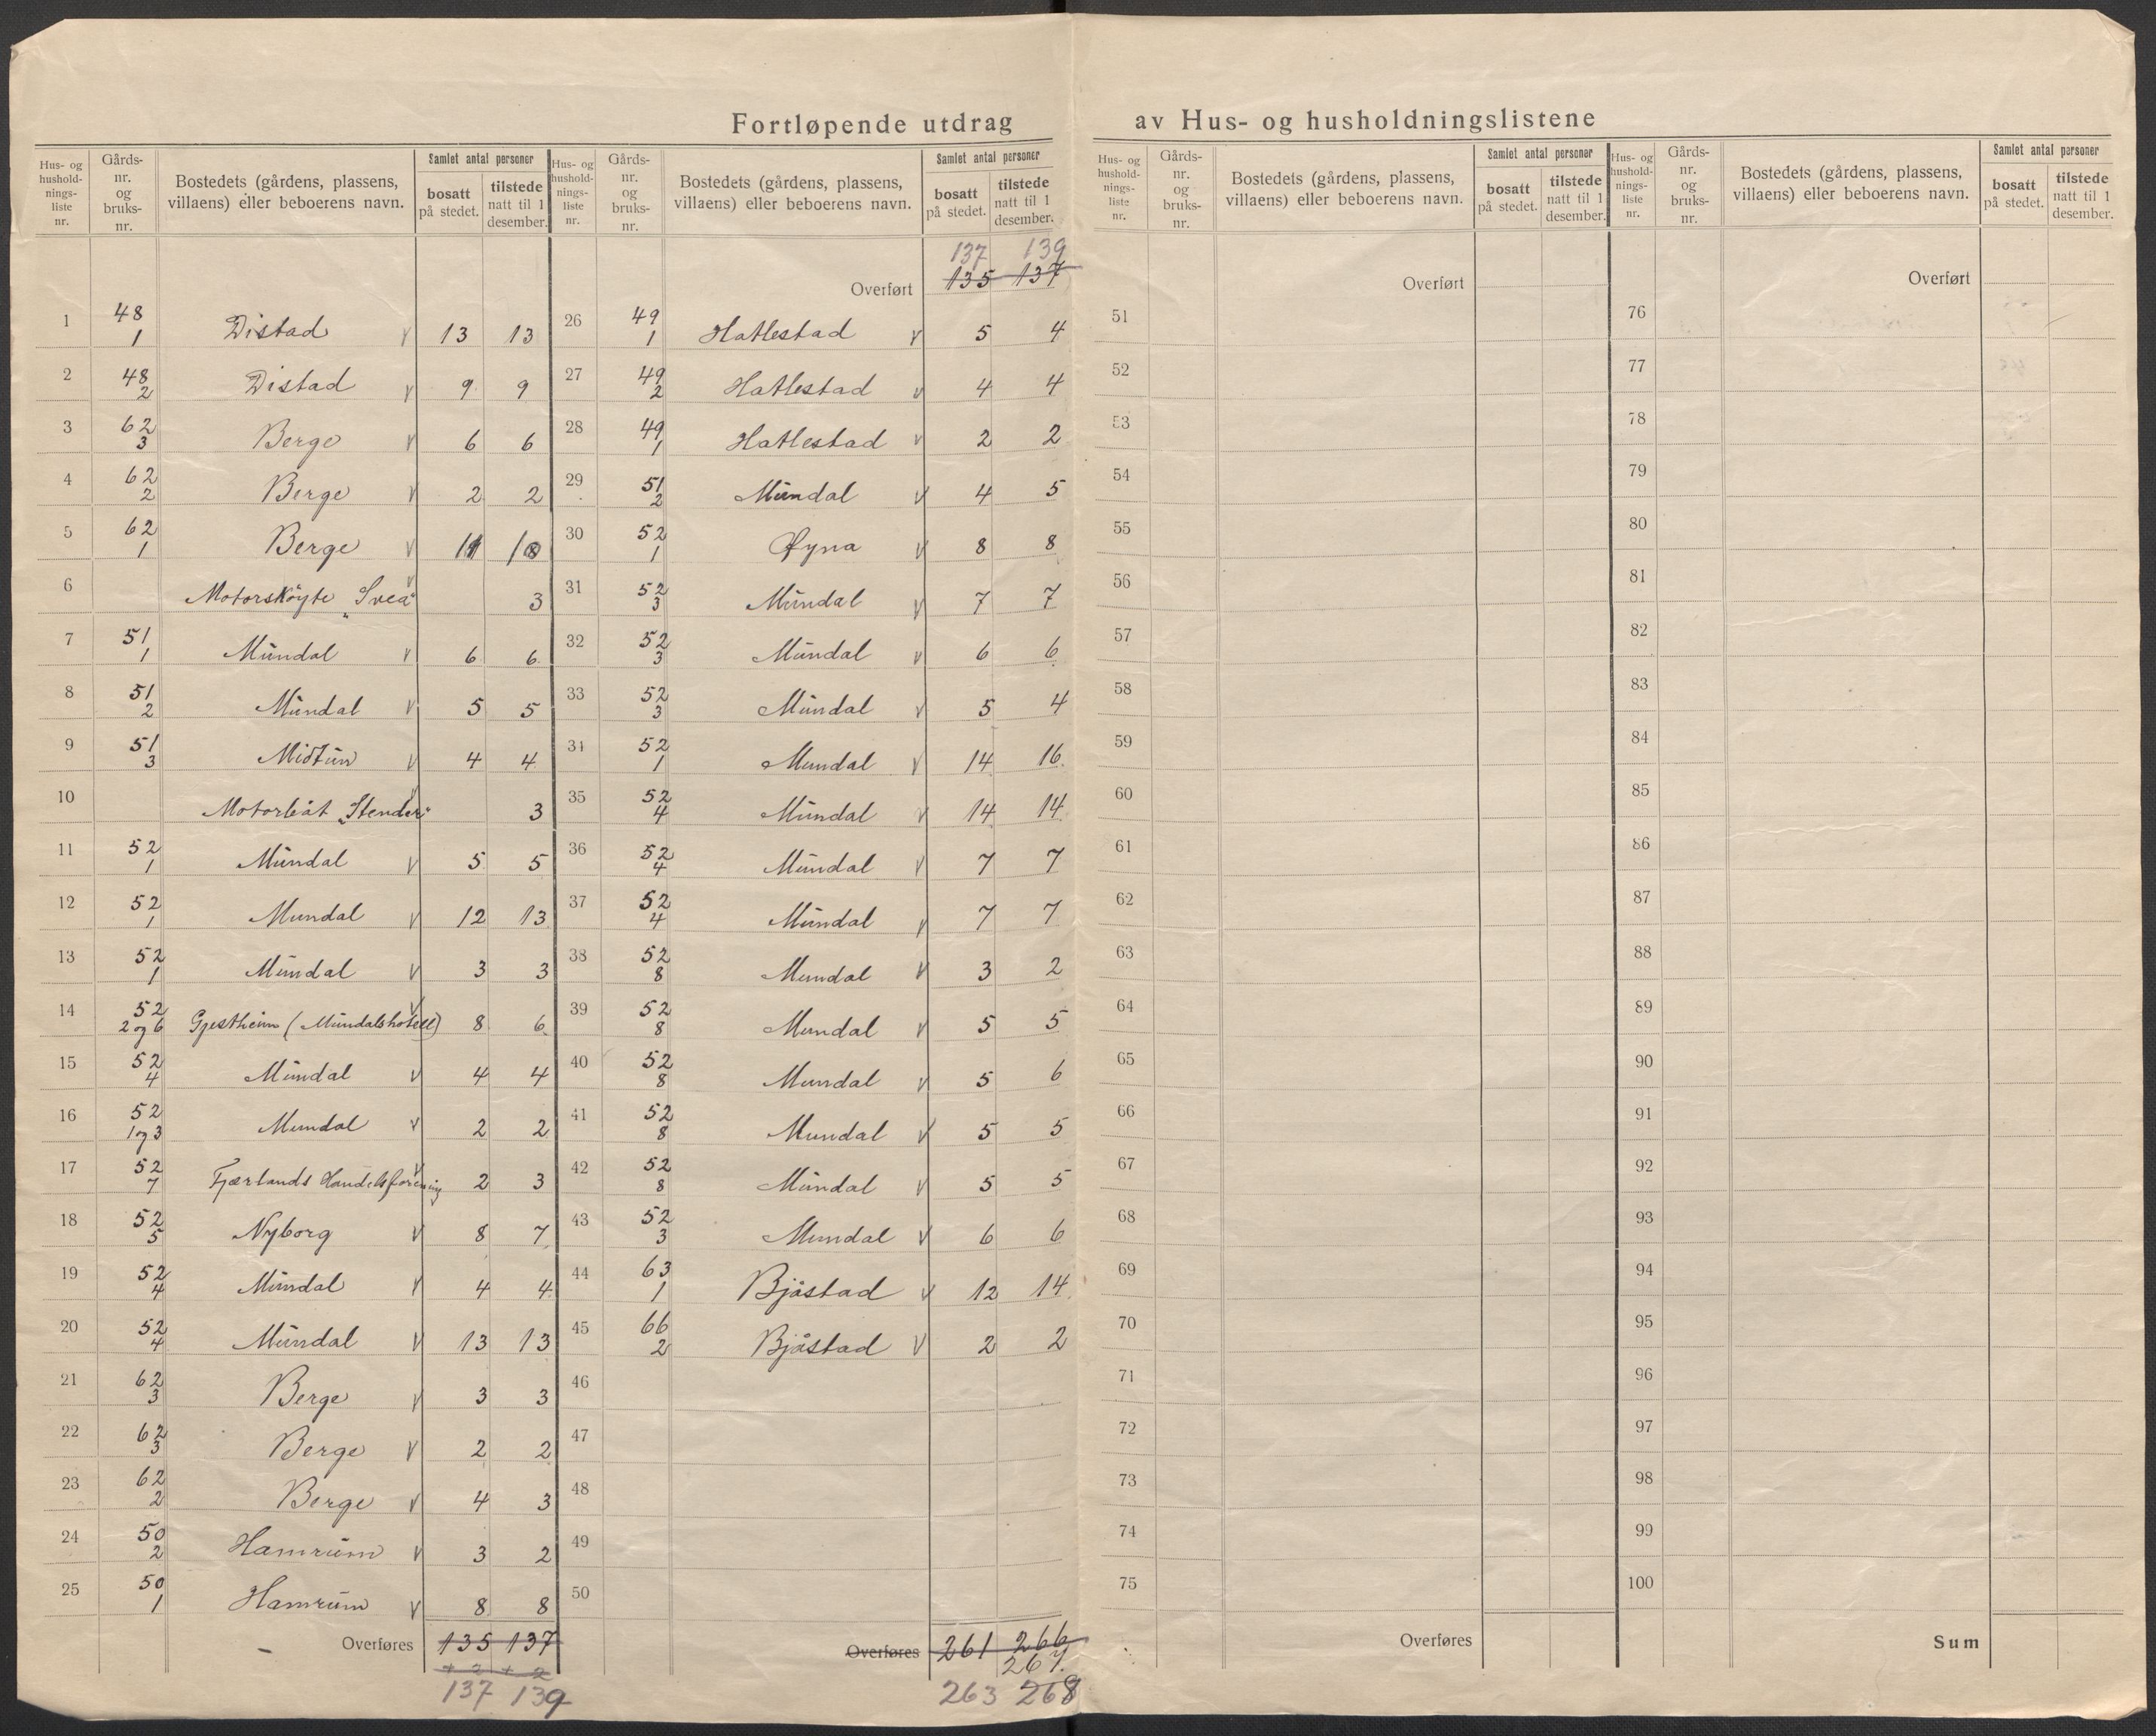 Fortløpende utdrag av Hus- og husholdningslistene
Hus- og hushold-nings-liste nr. Gårds-nr. og bruks-nr. Bostedets (gårdens, plassens, villaens) eller beboerens navn. Samlet antal personer bosatt på stedet. tilstede natt til 1 desember.
1 48 1 Distad v 13 13
2 48 2 Distad v 9 9
3 62 3 Berge v 6 6
4 62 2 Berge v 2 2
5 62 1 Berge v 11 10
6 Motorskøyte „Svea" v 3
7 51 1 Mundal v 6 6
8 51 2 Mundal v 5 5
9 51 3 Midtun v 4 4
10 Motorbåt „Stender" v 3
11 52 1 Mundal v 5 5
12 52 1 Mundal v 12 13
13 52 1 Mundal v 3 3
14 52 2 og 6 Gjestheim (Mundalshotell) v 8 6
15 52 4 Mundal v 4 4
16 52 1 og 3 Mundal v 2 2
17 52 7 Fjærlands Handelsforening v 2 3
18 52 5 Nyborg v 8 7
19 52 4 Mundal v 4 4
20 52 4 Mundal v 13 13
21 62 3 Berge v 3 3
22 62 3 Berge v 2 2
23 62 2 Berge v 4 3
24 50 2 Hamrum v 3 2
25 50 1 Hamrum v 8 8
Overføres 135 137
+ 2 + 2
137 139
Hus- og hushold-nings-liste nr. Gårds-nr. og bruks-nr. Bostedets (gårdens, plassens, villaens) eller beboerens navn. Samlet antal personer bosatt på stedet. tilstede natt til 1 desember.
137 139
Overført 135 137
26 49 1 Hatlestad v 5 4
27 49 2 Hatlestad v 4 4
28 49 1 Hatlestad v 2 2
29 51 2 Mundal v 4 5
30 52 1 Øyna v 8 8
31 52 3 Mundal v 7 7
32 52 3 Mundal v 6 6
33 52 3 Mundal v 5 4
34 52 1 Mundal v 14 16
35 52 4 Mundal v 14 14
36 52 4 Mundal v 7 7
37 52 4 Mundal v 7 7
38 52 8 Mundal v 3 2
39 52 8 Mundal v 5 5
40 52 8 Mundal v 5 6
41 52 8 Mundal v 5 5
42 52 8 Mundal v 5 5
43 52 3 Mundal v 6 6
44 63 1 Bjåstad v 12 14
45 66 2 Bjåstad v 2 2
46
47
48
49
50
Overføres 261 266
267
263 268
Hus- og hushold-nings-liste nr. Gårds-nr. og bruks-nr. Bostedets (gårdens, plassens, villaens) eller beboerens navn. Samlet antal personer bosatt på stedet. tilstede natt til 1 desember.
Overført
51
52
53
54
55
56
57
58
59
60
61
62
63
64
65
66
67
68
69
70
71
72
73
74
75
Overføres
Hus- og hushold-nings-liste nr. Gårds-nr. og bruks-nr. Bostedets (gårdens, plassens, villaens) eller beboerens navn. Samlet antal personer bosatt på stedet. tilstede natt til 1 desember.
Overført
76
77
78
79
80
81
82
83
84
85
86
87
88
89
90
91
92
93
94
95
96
97
98
99
100
Sum